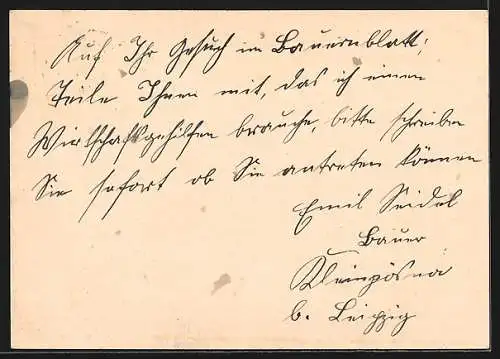 Auf Ihr Gesuch im Bauernblatt,
Teile Ihnen mit, das ich einen
Wirtschaftsgehilfen brauche, bitte schreiben
Sie sofort ob Sie antreten können
Emil Seidel
Bauer
Kleinpösna
b. Leipzig